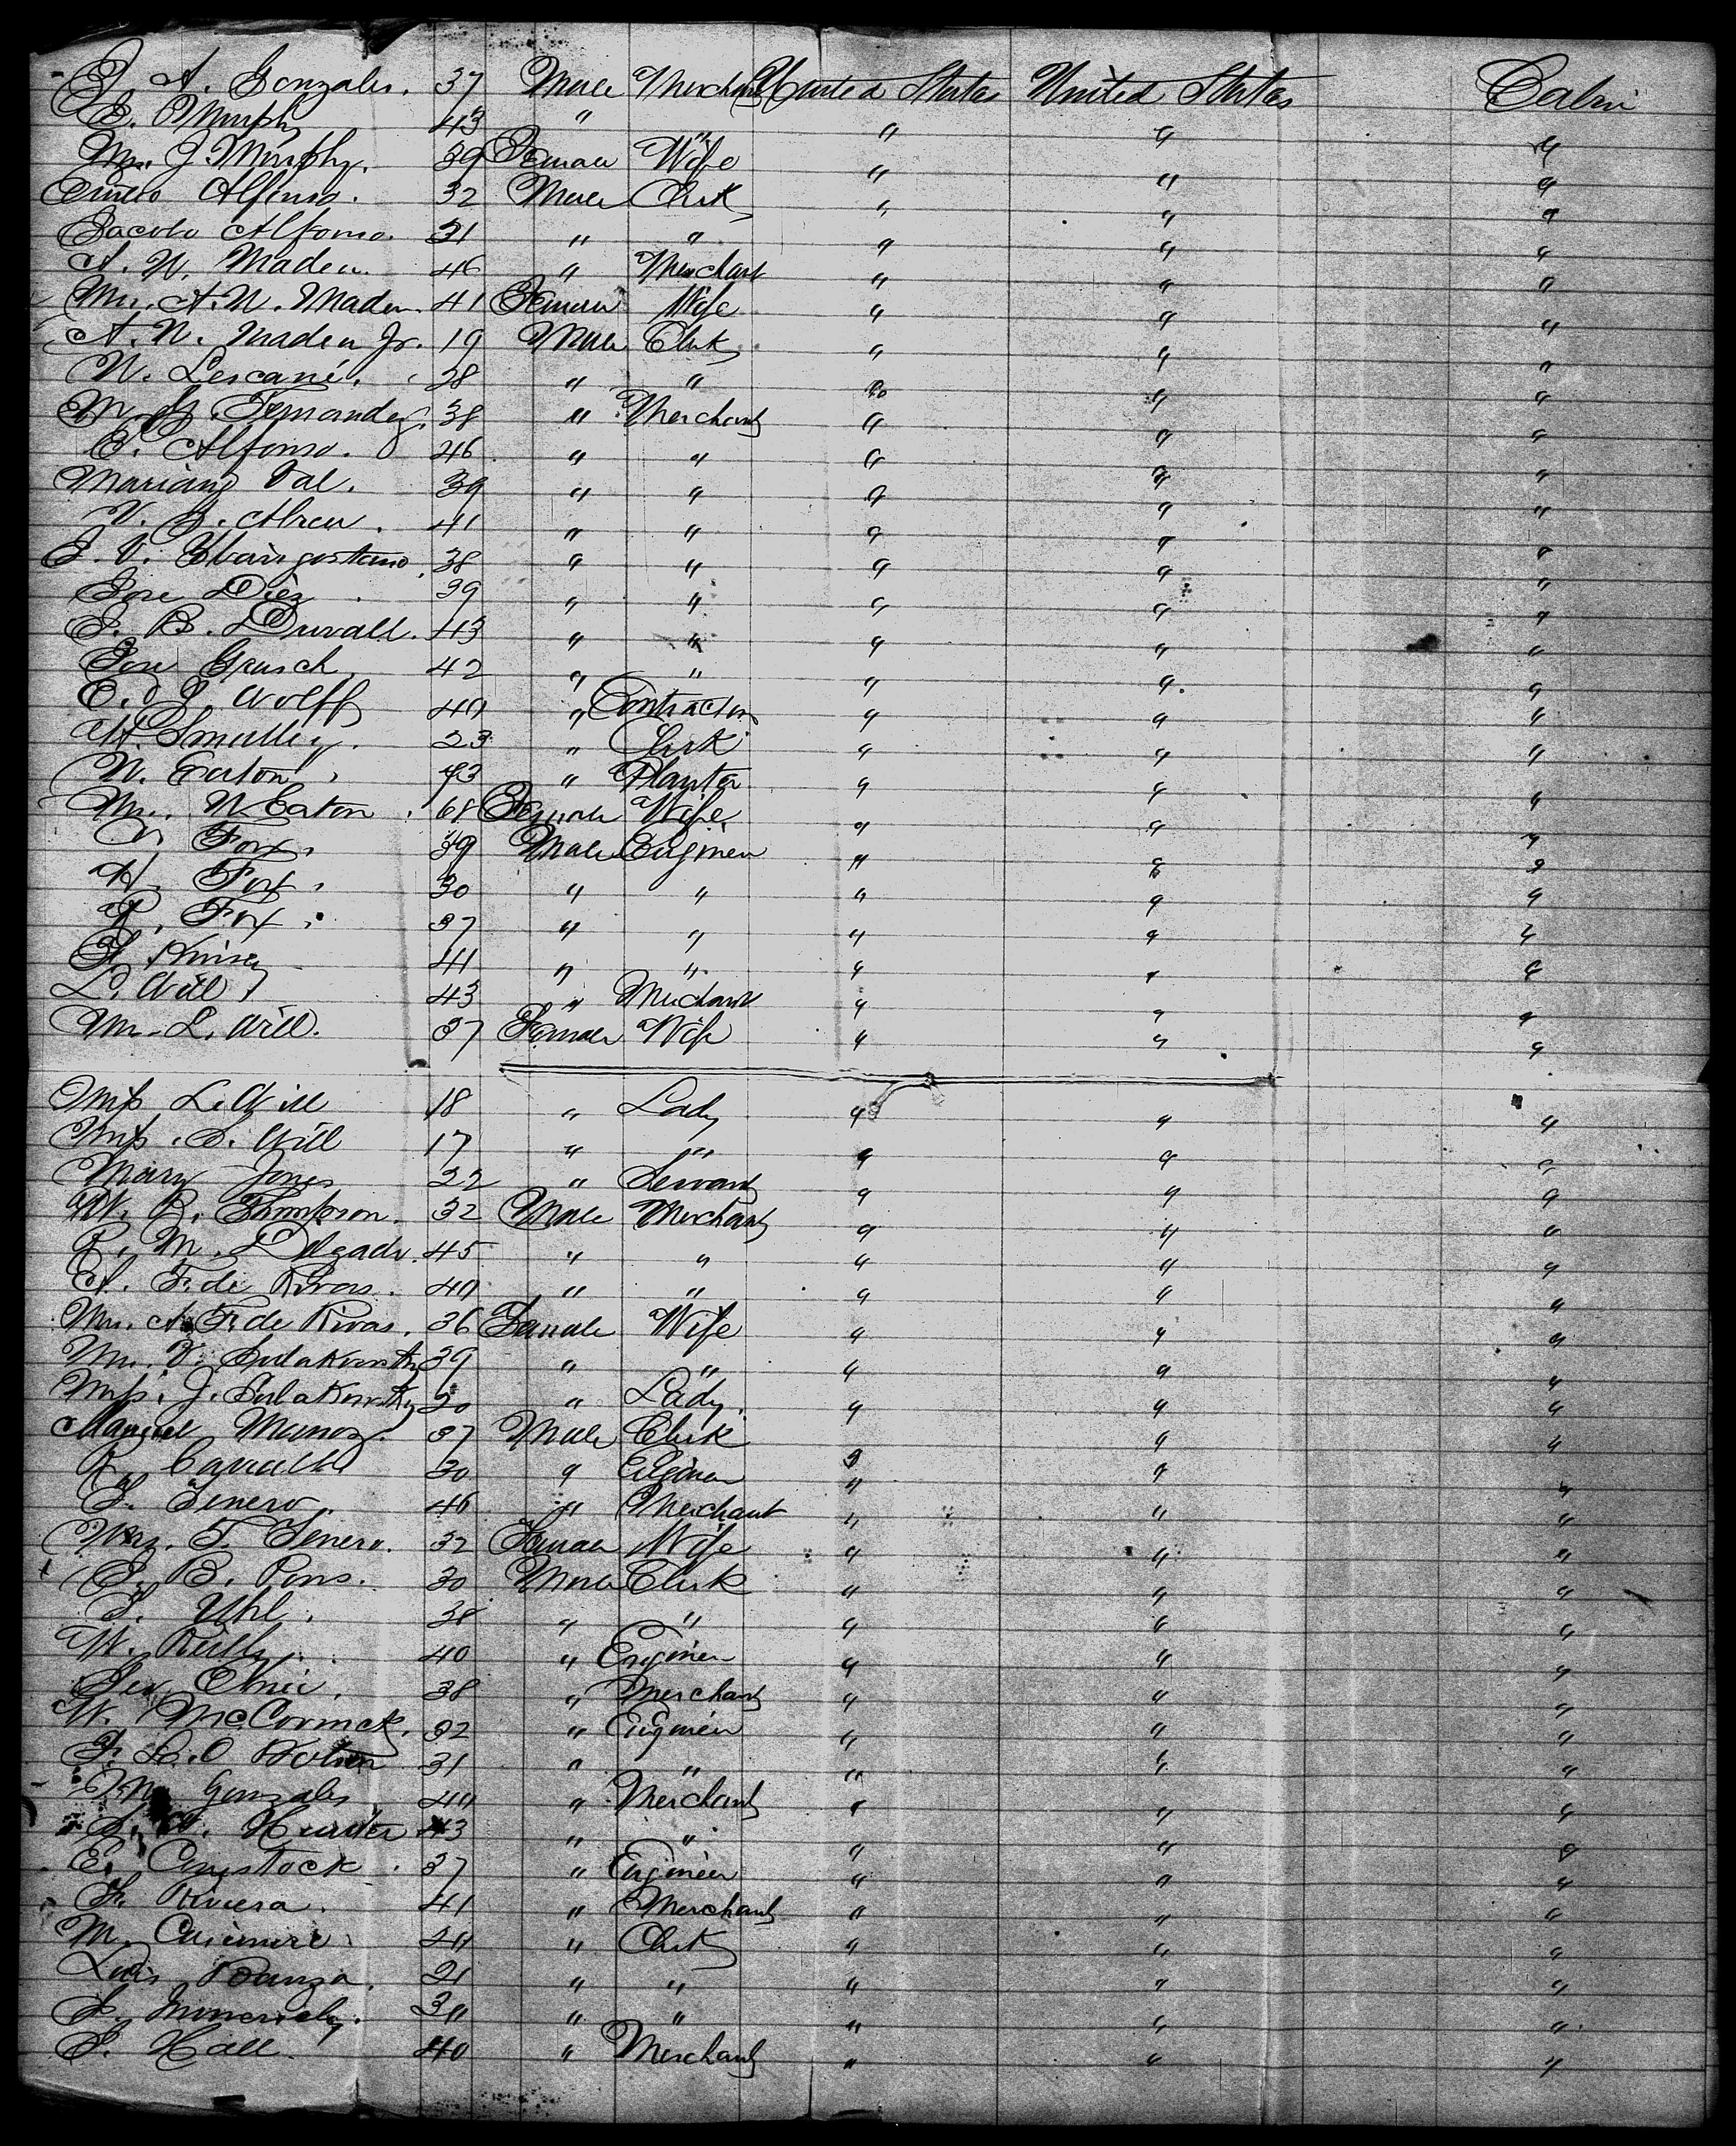 J. A. Gonzales. 37 Male Merchant United States United States Cabin
E. Murphy 43 " " " " "
Mrs. J. Murphy. 39 Female Wife " " "
Alfonso. 32 Male Clerk " " "
Jacobo Alfonso. 21 " " " " "
A. N. Maden. 46 " Merchant " " "
Mrs. A. N. Maden. 41 Female Wife " " "
A. N. Maden Jr. 19 Male Clerk " " "
N. Lescani. 28 " " " " "
M. G. Fernandez. 38 " Merchant " " "
E. Alfonso. 46 " " " " "
Mariano Val. 39 " " " " "
V. G. Abreu. 41 " " " " "
J. V. 38 " " " " "
Jose Diez 39 " " " " "
J. B. Duvall. 43 " " " " "
Jose Grusch 42 " " " " "
C. J. Wolff 40 " Contractor " " "
23 " Clerk " " "
N. Eaton. 73 " Planter " " "
Mrs. N. Eaton. 68 Female Wife " " "
Fox. 39 Male Engineer " " "
H. Fox. 30 " " " " "
P. Fox. 37 " " " " "
41 " " " " "
L. Will 43 " Merchant " " "
Mrs. L. Will. 37 Female Wife " " "
Miss L. Will 18 " Lady " " "
Miss. S. Will 17 " " " " "
Mary Jones 22 " Servant " " "
W. B. Thompson. 32 Male Merchant " " "
P. M. Delgado. 45 " " " " "
A. F. de Rivas. 40 " " " " "
Mrs. A. F. de Rivas. 36 Female Wife " " "
Mrs. V. Sulakowsky 39 " " " " "
Miss. J. Sulakowsky 20 " Lady. " " "
Manuel Munoz. 37 Male Clerk " " "
30 " Engineer " " "
T. Tenero. 46 " Merchant " " "
Mrs. T. Tenero. 32 Female Wife " " "
J. B. Pons. 30 Male Clerk " " "
Uhl. 38 " " " " "
W. Reilly. 40 " Engineer " " "
38 " Merchant " " "
W. McCormick. 32 " Engineer " " "
31 " " " " "
Gonzales " Merchant " " "
Hunter 43 " " " " "
E. Comstock. 37 " Engineer " " "
F. Riviera. 41 " Merchant " " "
M. Casimiri " Clerk " " "
Luis Banza. 21 " " " " "
" " " " "
J. Hall. 40 " Merchant " " "